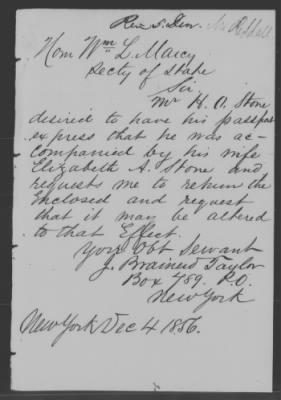 Hom Wm L. Marcy
Secty of State
Sir,
Mr H. O. Stone
desired to have his passport
express that he was ac-
companied by his wife
Elizabeth A. Stone and
requests me to return the
Enclosed and request
that it may be altered
to that Effect.
Your Obt Servant
J. Brainerd Taylor
Box 789. P.O.
New York
New York Dec 4 1856.